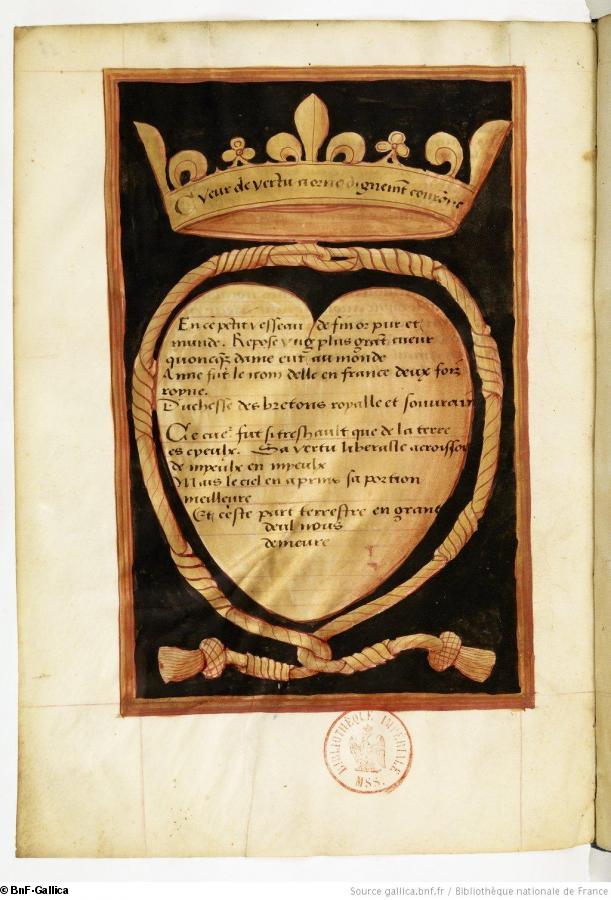 Cueur de vertu aorne dignemt couronne
En ce petit vesseau de fin or pur et
munde. Repose ung plus grat cueur
quoncqz dame eut au monde
Anne fut le nom delle en france deux foiz
royne.
Duchesse des bretons royalle et souuraine
Ce cuer fut si treshault que de la terre
es cyeulx. Sa vertu liberalle acroissoit
de myeulx en myeulx
Mais le ciel en a prins sa portion
meilleure
Et ceste part terrestre en grand
deul nous
demeure
BIBLIOTHÈQUE IMPÉRIALE
MSS.
© BnF-Gallica
Source gallica.bnf.fr / Bibliothèque nationale de France